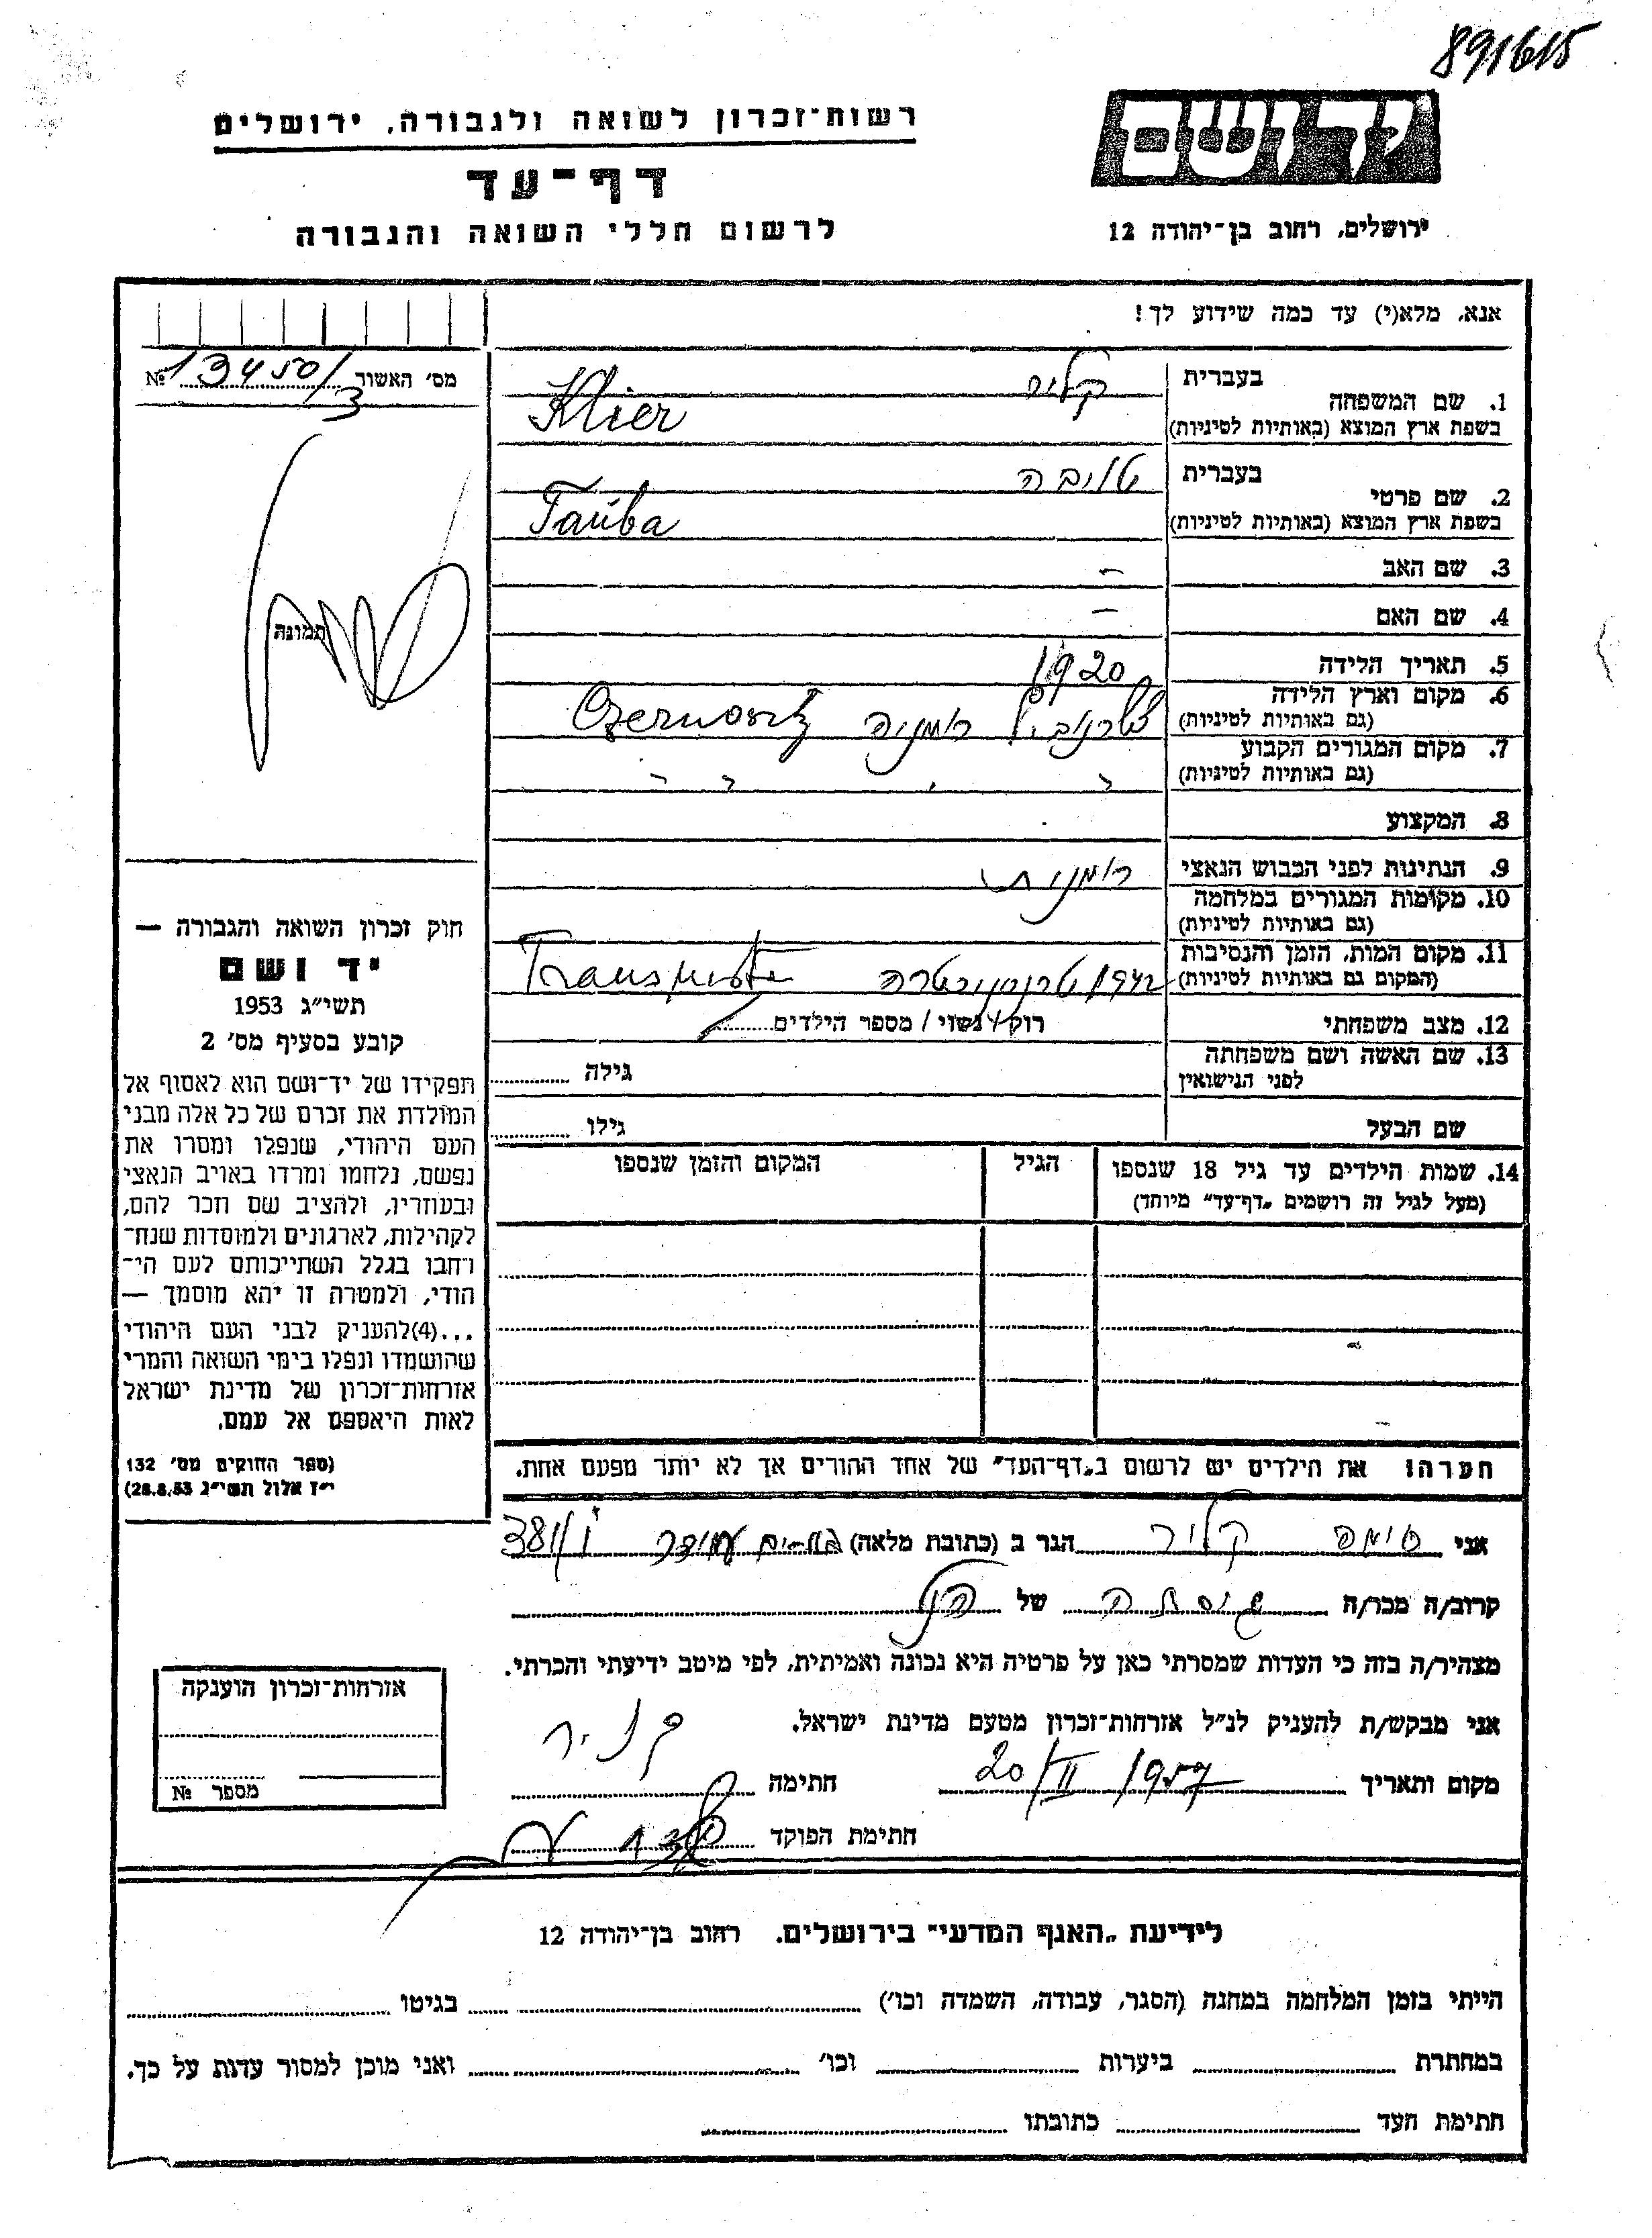 891615
רשות־זכרון לשואה ולגבורה, ירושלים
יד ושם
דף־עד
לרשום חללי השואה והגבורה
ירושלים, רחוב בן־יהודה 12
אנא, מלא(י) עד כמה שידוע לך!
מס׳ האשור 13450/3 №
תמונה
1. שם המשפחה
בעברית קליר
בשפת ארץ המוצא (באותיות לטיניות) Klier
2. שם פרטי
בעברית טויבה
בשפת ארץ המוצא (באותיות לטיניות) Tauba
3. שם האב –
4. שם האם –
5. תאריך הלידה 1920
6. מקום וארץ הלידה
(גם באותיות לטיניות) רומניה
7. מקום המגורים הקבוע
(גם באותיות לטיניות)
8. המקצוע
9. הנתינות לפני הכבוש הנאצי רומנית
10. מקומות המגורים במלחמה
(גם באותיות לטיניות)
11. מקום המות, הזמן והנסיבות
(המקום גם באותיות לטיניות)
12. מצב משפחתי רוק / נשוי / מספר הילדים
13. שם האשה ושם משפחתה
לפני הנישואין גילה
שם הבעל גילו
14. שמות הילדים עד גיל 18 שנספו הגיל המקום והזמן שנספו
(מעל לגיל זה רושמים „דף־עד״ מיוחד)
חוק זכרון השואה והגבורה —
יד ושם
תשי״ג 1953
קובע בסעיף מס׳ 2
תפקידו של יד־ושם הוא לאסוף אל
המולדת את זכרם של כל אלה מבני
העם היהודי, שנפלו ומסרו את
נפשם, נלחמו ומרדו באויב הנאצי
ובעוזריו, ולהציב שם וזכר להם,
לקהילות, לארגונים ולמוסדות שנח־
רבו בגלל השתייכותם לעם הי־
הודי, ולמטרה זו יהא מוסמך —
...(4)להעניק לבני העם היהודי
שהושמדו ונפלו בימי השואה והמרי
אזרחות־זכרון של מדינת ישראל
לאות היאספם אל עמם.
(ספר החוקים מס׳ 132
י״ז אלול תשי״ג 28.8.53)
הערה! את הילדים יש לרשום ב„דף־העד״ של אחד ההורים אך לא יותר מפעם אחת.
אני קליר הגר ב (כתובת מלאה)
קרוב/ה מכר/ה גיסתה של הנ״ל
מצהיר/ה בזה כי העדות שמסרתי כאן על פרטיה היא נכונה ואמיתית, לפי מיטב ידיעתי והכרתי.
אני מבקש/ת להעניק לנ״ל אזרחות־זכרון מטעם מדינת ישראל.
מקום ותאריך 20/II 1957 חתימה
חתימת הפוקד
אזרחות־זכרון הוענקה
מספר №
לידיעת „האגף המדעי״ בירושלים. רחוב בן־יהודה 12
הייתי בזמן המלחמה במחנה (הסגר, עבודה, השמדה וכו׳) בגיטו
במחתרת ביערות וכו׳ ואני מוכן למסור עדות על כך.
חתימת העד כתובתו